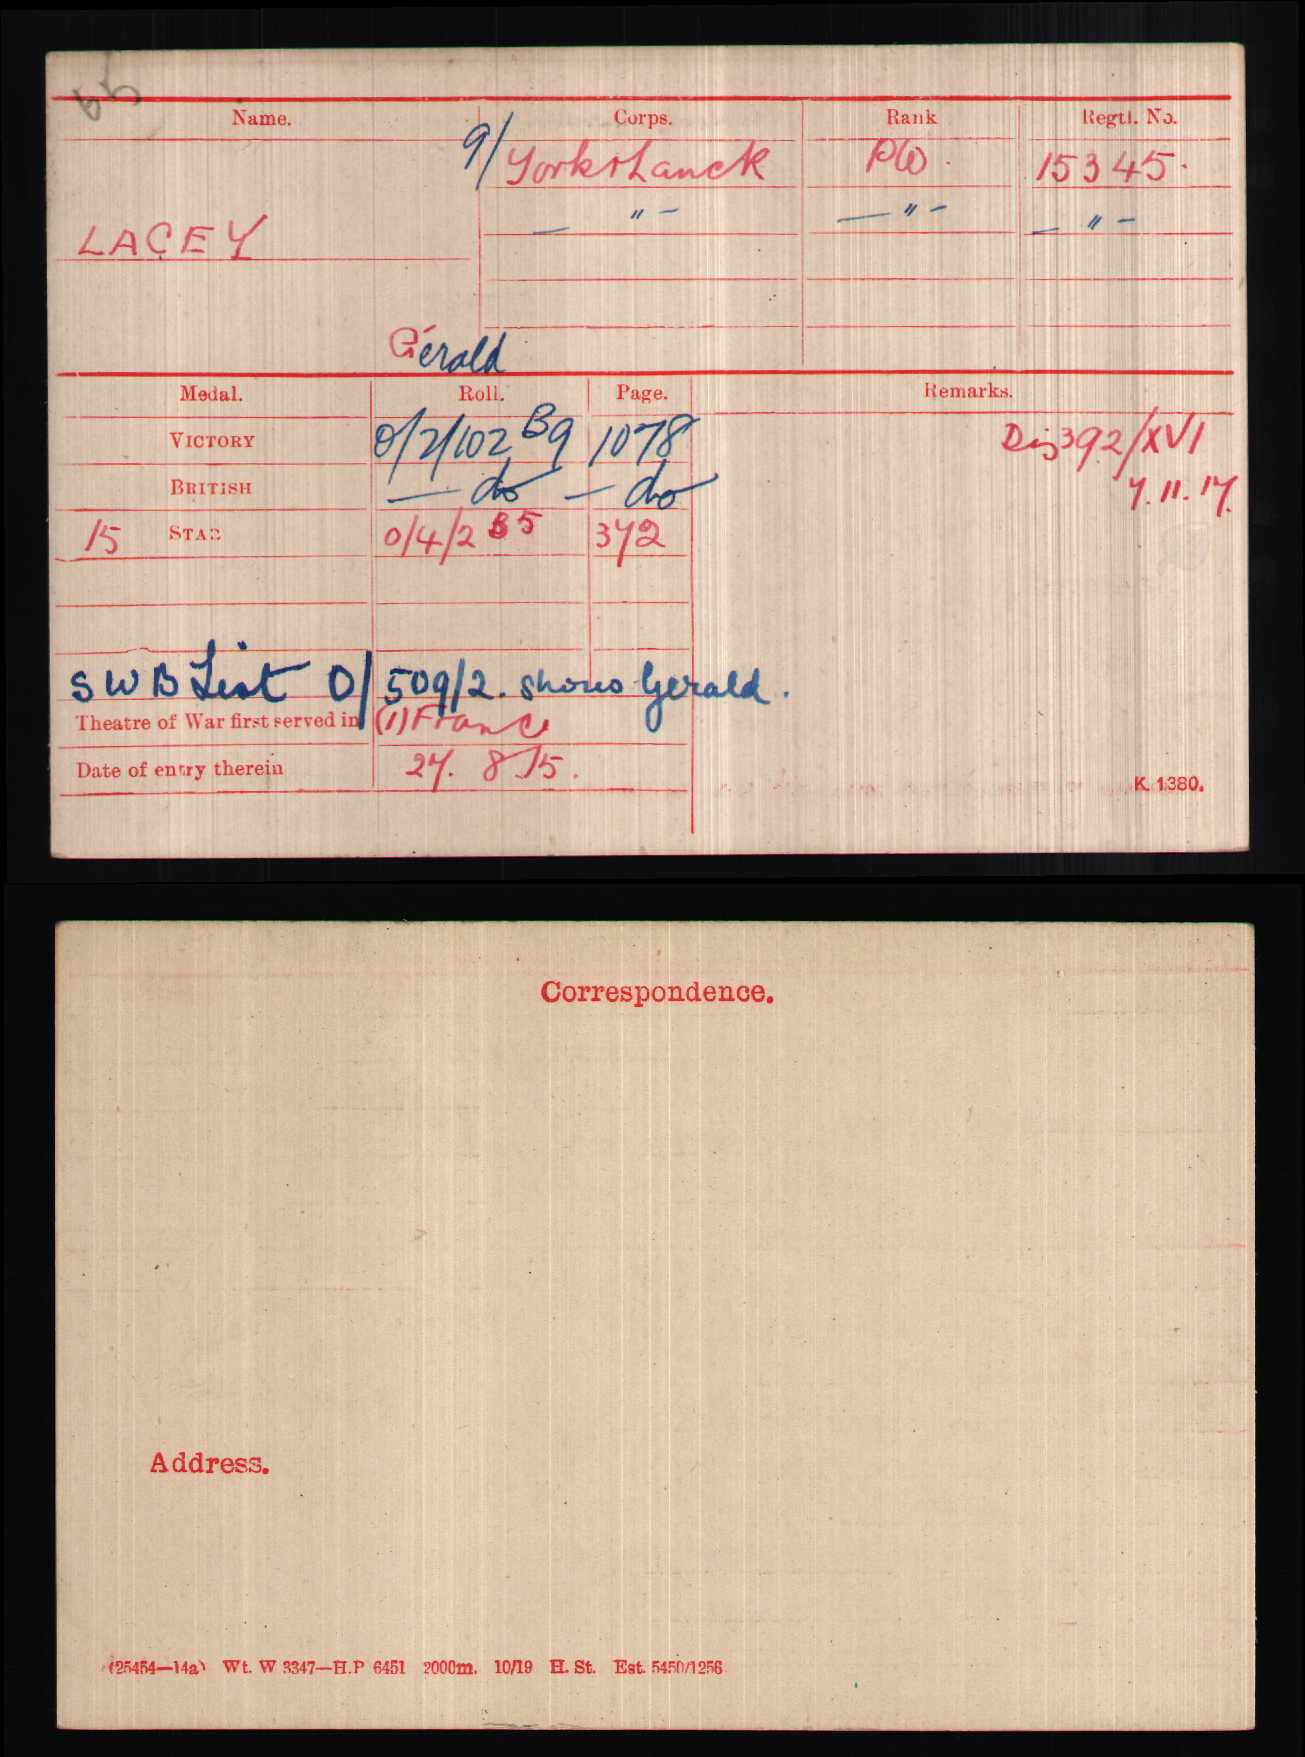 65
Name. Corps. Rank Regtl. No.
9/ York & Lanc R Pte. 15345.
— " — — " — — " —
LACEY
Gerald
Medal. Roll. Page. Remarks.
VICTORY O/2/102 B9 1078 Dis 392/XVI
BRITISH — do — do 7.11.17.
15 STAR O/4/2 B5 372
SWB List O/509/2. shows Gerald.
Theatre of War first served in (1) France
Date of entry therein 27. 8 15.
K. 1380.
Correspondence.
Address.
(25454—14a) Wt. W 3347—H.P 6451 2000m. 10/19 H. St. Est. 5450/1256